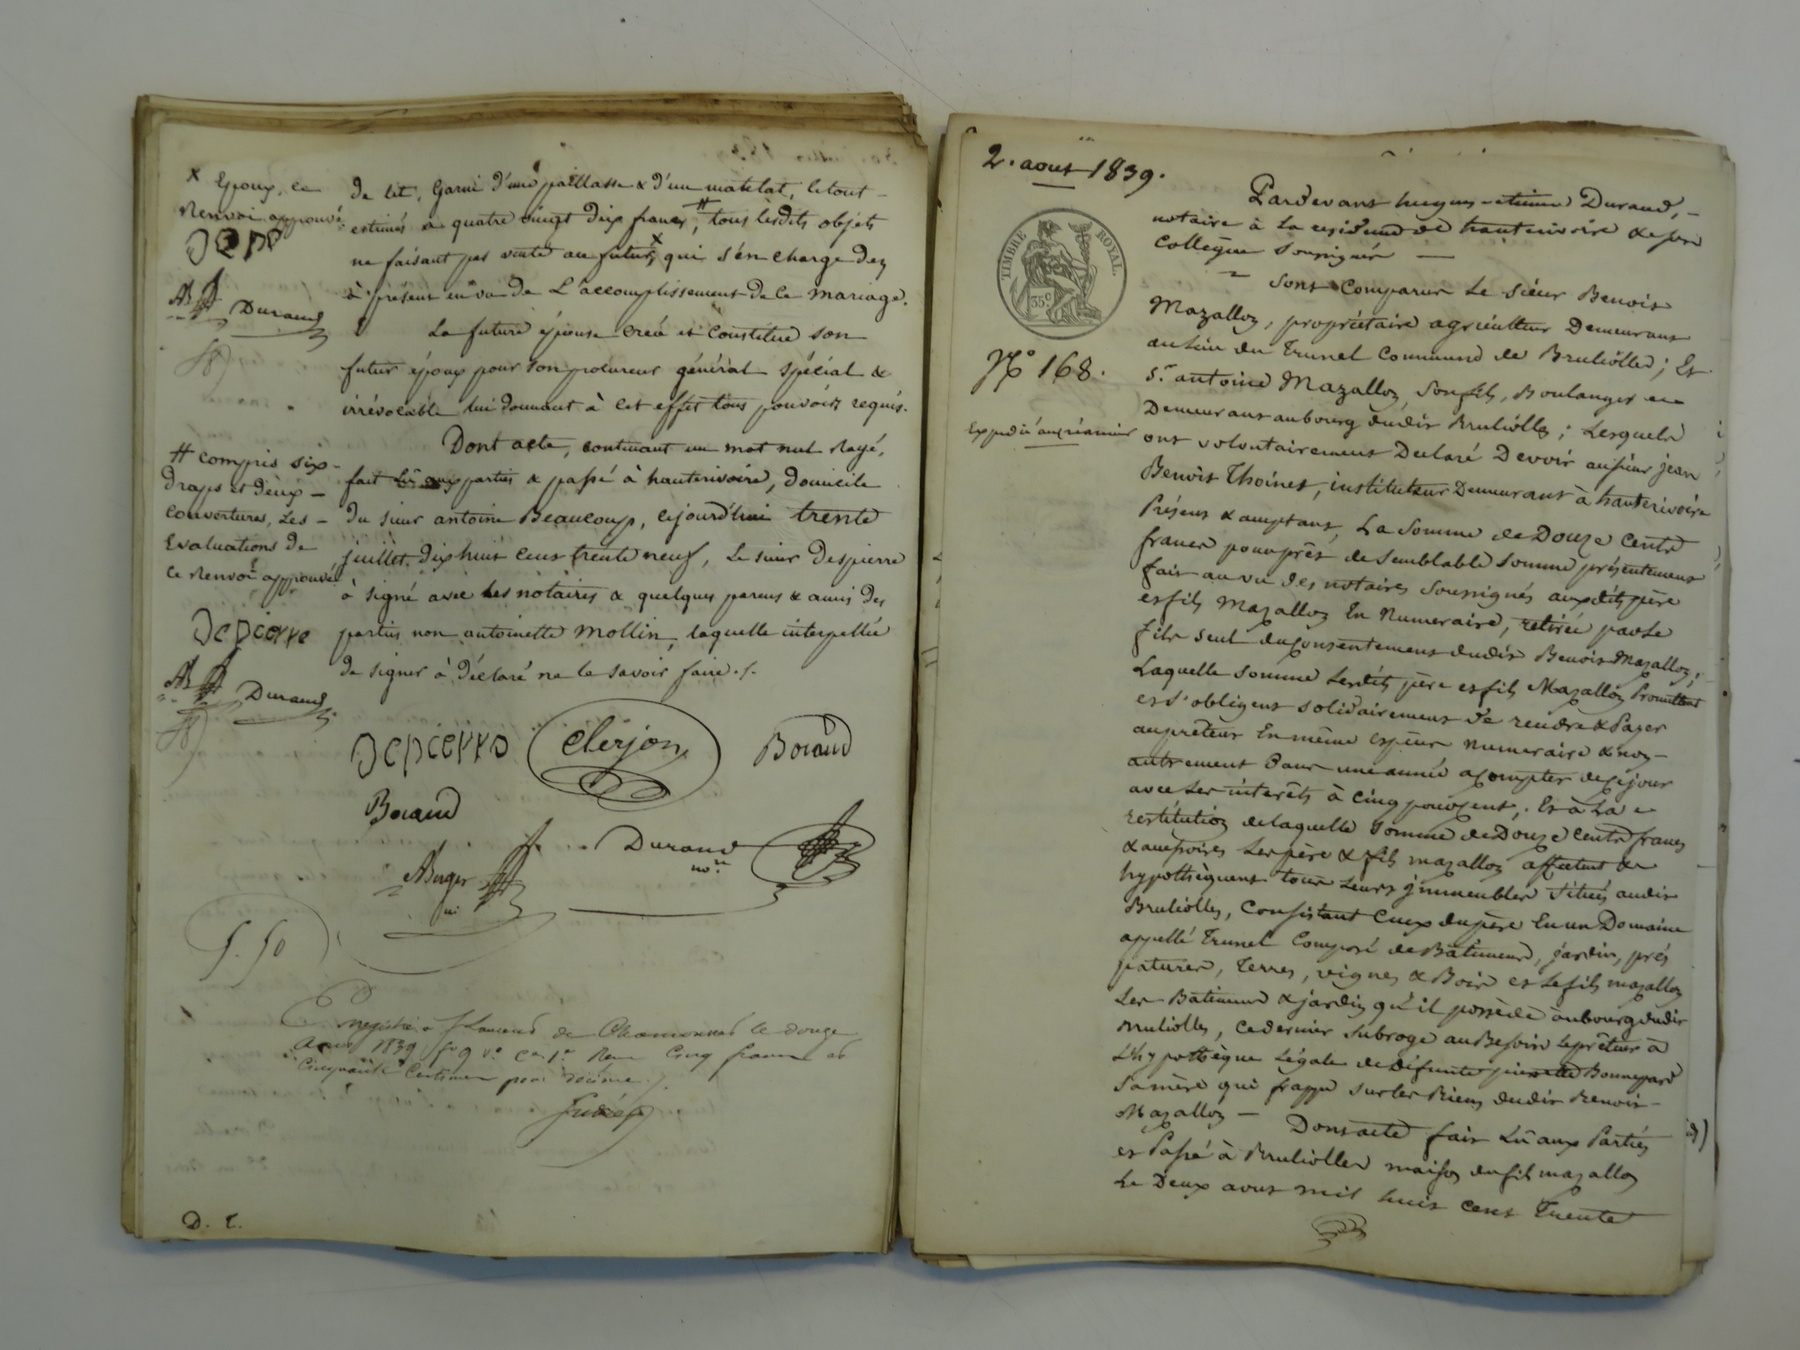 x Epoux, ce
Renvoi approuvé
Dep
AB Durand
# compris six
draps et deux
couvertures, les
Evaluations de
ce Renvoi approuvé
Depierre
AB Durand
de lit, Garni d'une paillasse & d'un matelat, le tout
estimés a quatre vingt dix francs, # tous lesdits objets
ne faisant pas vente au futur x qui s'en charge dez
à présent en vu de L'accomplissement de ce mariage.
La future épouse crée et Constitue son
futur époux pour son procureur général spécial &
irrévocable lui donnant à cet effet tous pouvoirs requis.
Dont acte, contenant un mot nul Rayé,
fait lû aux parties & passé à hauterivoire, domicile
du sieur antoine Beaucoup, cejourd'hui trente
juillet, dix huit cent trente neuf, Le sieur Despierre
à signé avec les notaires & quelques parens & amis des
parties non antoinette Mollin, laquelle interpellée
de signer à déclaré ne le savoir faire ./.
Depierre Clerjon Boiand
Boiand
Durand
nore
ABerger
5. 50
Enregistré a St Laurent de Chamousset le douze
Aout 1839 fo 9 Vo Cs 1re Reçu Cinq francs et
Cinquante Centimes pour décime ./.
D. T.
2. aout 1839.
TIMBRE ROYAL.
35 c
No 168.
Expedié au créancier
Pardevant hugues-etienne Durand,
notaire à La résidence de hauterivoire & son
Collègue soussignés
Sont Comparus Le Sieur Benoit
Mazallon, propriétaire agriculteur Demeurant
au lieu du Trunel Commune de Brullioles; Et
Sr. antoine Mazallon, son fils, Boulanger
Demeurant au bourg dudit Brullioles; Lesquels
ont volontairement Declaré Devoir au sieur jean
Benoit Thoinet, instituteur Demeurant à hauterivoire
Présent & acceptant, La Somme de Douze Cents
francs pour prêt de semblable somme présentement
fait au vu des notaires Soussignés auxdits père
et fils Mazallon En Numeraire, retirée par Le
fils seul du consentement dudit Benoit Mazallon;
Laquelle somme Lesdits père et fils Mazallon Promettent
et s'obligent solidairement de rendre & Payer
au prêteur En même espèce numeraire & non
autrement Dans une année a compter de ce jour
avec Les intérêts à Cinq pour cent; Et à La
restitution de laquelle Somme de Douze Cents francs
& accessoires Les père & fils mazallon affectent &
hypothèquent tous Leurs jmmeubles situés audit
Brullioles, Consistant Ceux du père En un Domaine
appellé Trunel Composé de Bâtiment, jardin, prés
patures, Terres, vignes & Bois et Le fils mazallon
Les Batiment & jardin qu'il possède au bourg dudit
Brullioles, Ce dernier subroge au Besoin Le prêteur à
L'hypothèque Légale de défunte pierrette Bonnepard
Sa mère qui frappe sur les Biens dudit Benoit
Mazallon — Dont acte fait Lû aux Parties
et Passé à Brullioles maison du fils mazallon
Le Deux aout mil huit cent Trente